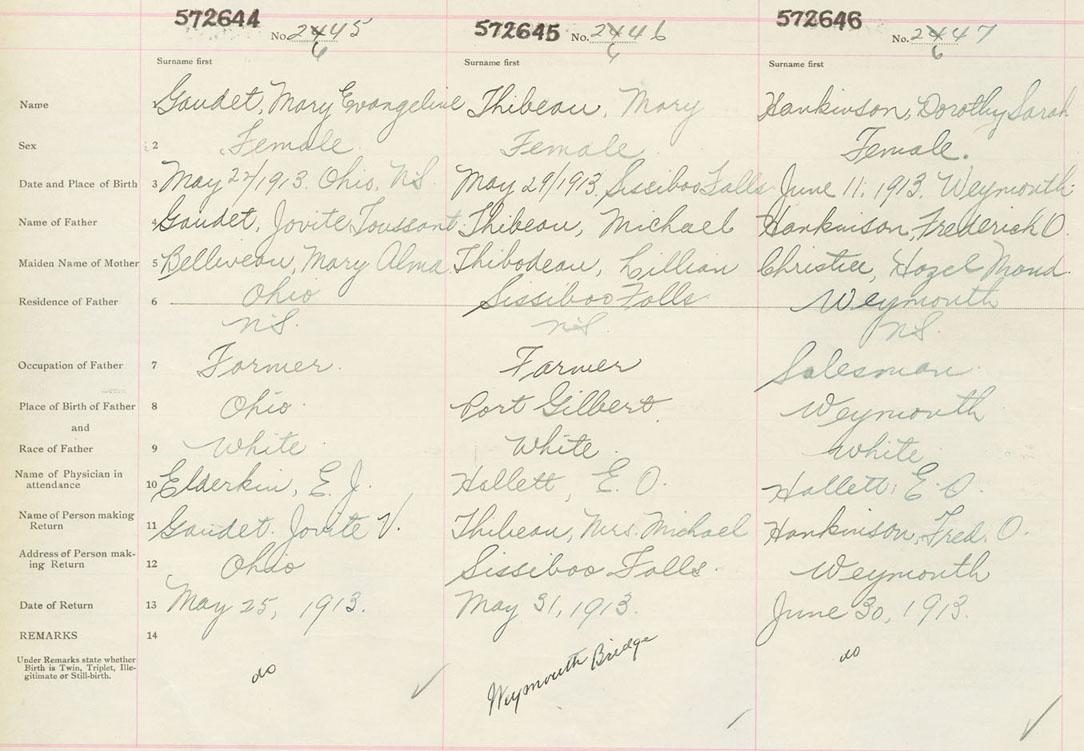 572644 572645 572646
No. 2445 No. 2446 No. 2447
6 6 6
Surname first Surname first Surname first
Name 1 Gaudet, Mary Evangeline Thibeau, Mary Hankinson, Dorothy Sarah
Sex 2 Female. Female. Female.
Date and Place of Birth 3 May 22/1913. Ohio, N.S. May 29/1913, Sissiboo Falls June 11, 1913. Weymouth
Name of Father 4 Gaudet, Jovite Toussant Thibeau, Michael Hankinson, Frederick O.
Maiden Name of Mother 5 Belliveau, Mary Alma Thibodeau, Lillian Christie, Hazel Maud.
Residence of Father 6 Ohio Sissiboo Falls Weymouth
N.S. N.S. N.S.
Occupation of Father 7 Farmer. Farmer Salesman
Place of Birth of Father 8 Ohio. Port Gilbert. Weymouth
and
Race of Father 9 White White. White.
Name of Physician in
attendance 10 Elderkin, E. J. Hallett, E. O. Hallett, E. O.
Name of Person making
Return 11 Gaudet. Jovite V. Thibeau, Mrs. Michael Hankinson, Fred. O.
Address of Person mak-
ing Return 12 Ohio Sissiboo Falls. Weymouth
Date of Return 13 May 25, 1913. May 31, 1913. June 30, 1913.
REMARKS 14
Under Remarks state whether
Birth is Twin, Triplet, Ille-
gitimate or Still-birth.
do Weymouth Bridge do